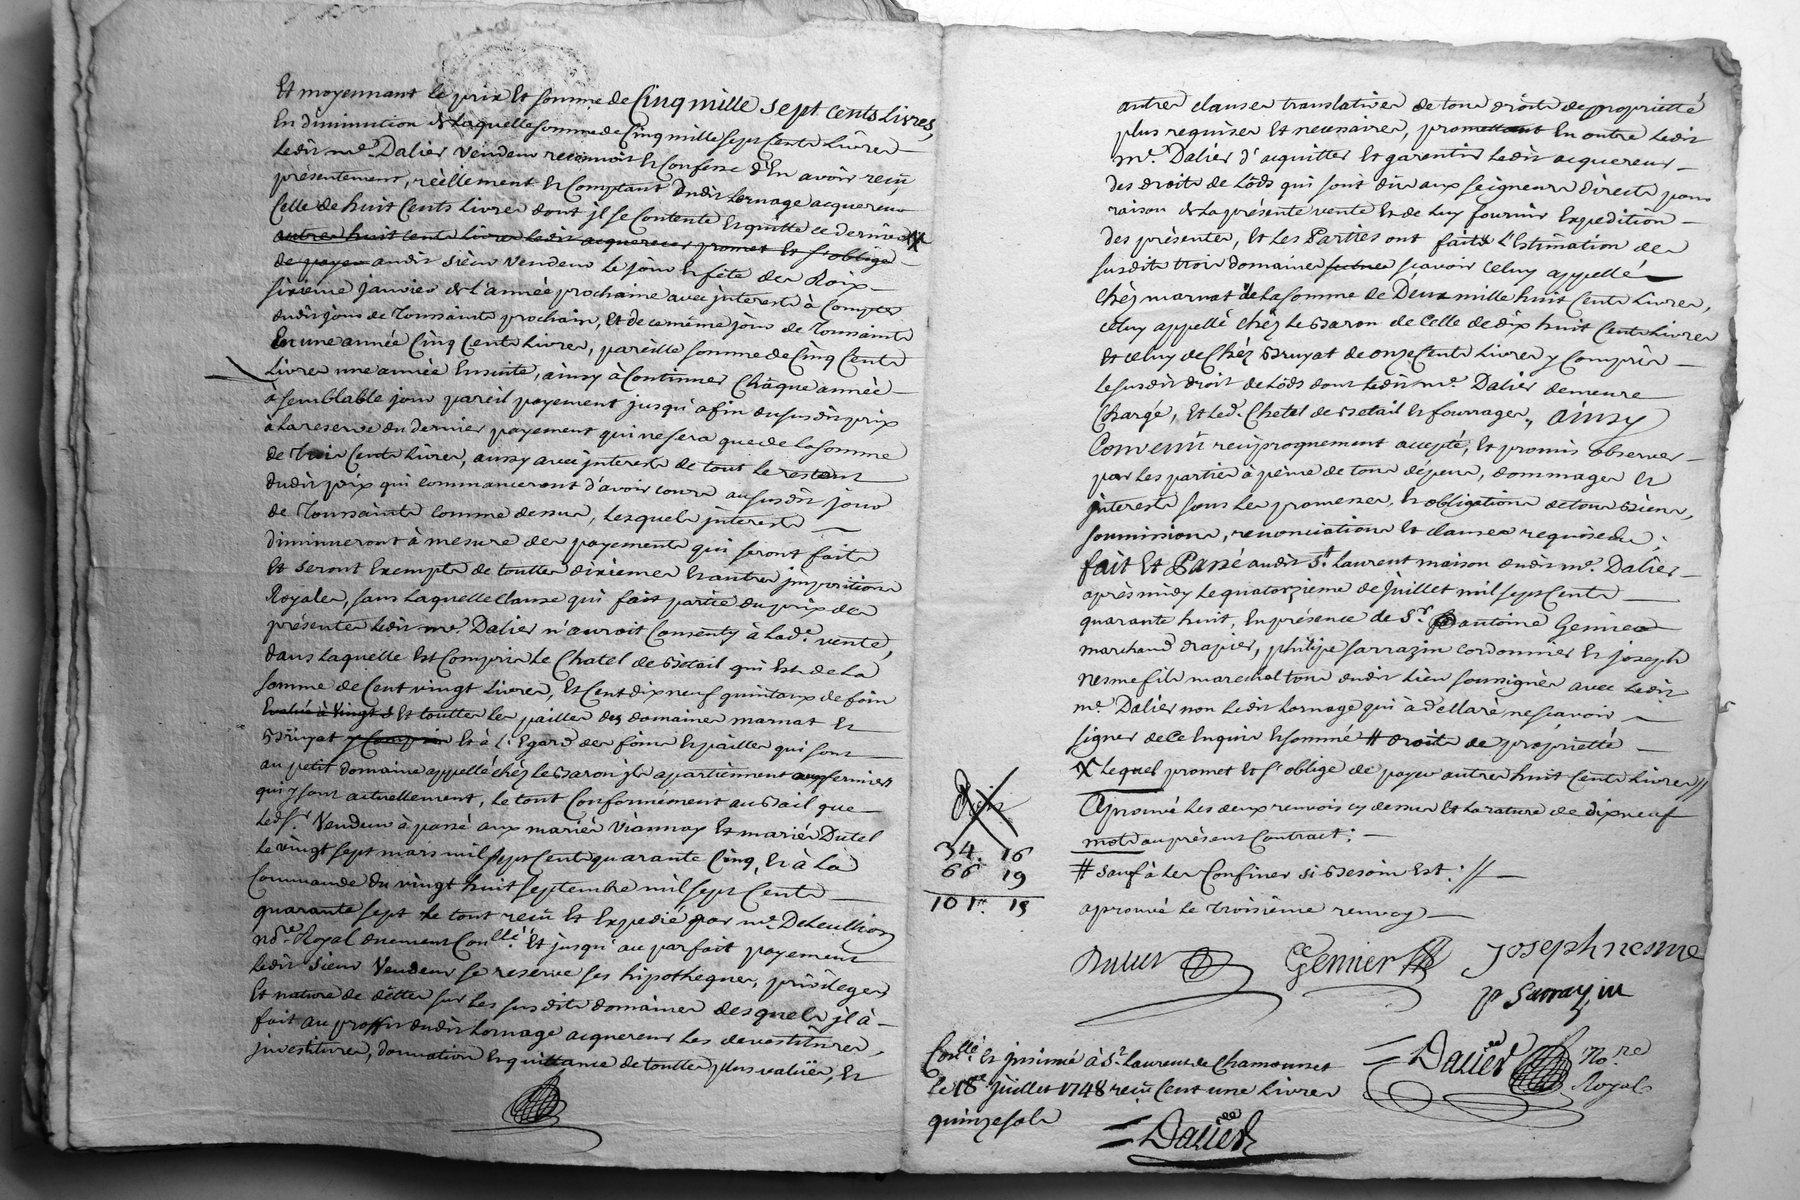 Et moyennant le prix Et somme de Cinq mille sept cents Livres,
En diminution de laquelle somme de Cinq mille sept Cents Livres
Ledit me. Dalier Vendeur reconnoit et Confesse d'En avoir reçû
presentement, réellement et Comptant dudit Lornage acquereur
Celle de huit Cents Livres dont jl se Contente Et quitte ce dernier X
autres huit cents Livres ledit acquereur promet Et s'oblige
de payer audit Sieur Vendeur le jour et fête des Roix
sixieme janvier de l'année prochaine avec jnterests à Compter
dudit jour de Toussaints prochain, Et de ce même jour de Toussaints
En une année Cinq Cents Livres, pareille somme de Cinq Cents
Livres une année Ensuite, ainsy à Continuer Chaque année
à semblable jour pareil payement jusqu'a fin du susdit prix
à la reserve du dernier payement qui ne sera que de la somme
de trois Cents Livres, aussy avec jnterests de tout le restant
dudit prix qui commenceront d'avoir cours au susdit jour
de Toussaints comme dessus, lesquels jnterests
diminueront à mesure des payements qui seront faits
Et seront Exempts de touttes dixiemes et autres jmpositions
Royales, sans laquelle Clause qui fait partie du prix des
présentes ledit me. Dalier n'auroit Consenty à lade. vente,
dans laquelle est Compris le Chatel de Betail qui Est de la
somme de Cent vingt Livres, Et Cent dix neuf quintaux de foin
Evalué à vingt s Et touttes les pailles des domaines marnat et
Bruyat y Compris Et à L'Egard des foins Et pailles qui sont
au petit domaine appellé chéz le Baron jls apartiennent aux fermiers
qui y sont actuellement, le tout Conformément au Bail que
Ledsr. Vendeur à passé aux mariés Viannay Et mariés Dutel
le vingt sept mars mil sept Cent quarante Cinq, Et à la
Commande du vingt huit septembre mil sept Cents
quarante sept le tout reçû Et Expedié par me. Deheullion
nore. Royal duement Conllé. Et jusqu'au parfait payement
ledit Sieur Vendeur se reserve ses hipotheques, privileges
Et nature de dettes sur les susdits domaines desquels jl à
fait au proffit dudit Lornage acquereur les devestitures,
jnvestitures, donnation Et quittance de touttes plus valües, Et
autres clauses translatives de tous droits de propriétté
plus requises Et necessaires, promettant En outre ledit
me. Dalier d'acquitter Et garentir ledit acquereur
des droits de Lôds qui sont dûs aux seigneurs directs pour
raison de la présente vente Et de luy fournir Expedition
des présentes, Et les Parties ont faits l'Estimation des
susdits trois domaines sçavoir Celuy appellé
Chéz marnat de la somme de Deux mille huit Cents Livres,
celuy appellé chéz le Baron de Celle de dix huit Cents Livres
Et celuy de Chéz Bruyat de onze Cents Livres y Compris
le susdit droit de Lôds dont ledit me. Dalier demeure
Chargé, Et led. Chetel de Betail et fourrages, ainsy
Convenû reciproquement accepté, Et promis observer
par les parties à peine de tous dépens, dommages et
jnterests sous les promesses, et obligations de tous Biens,
soumissions, renonciations Et clauses requises &a;
fait Et Passé audit St. Laurent maison dudit me. Dalier
après midy le quatorzieme de juillet mil sept Cents
quarante huit, En présence de Sr. antoine Genier
marchand drapier, philipe sarrazin cordonnier et joseph
nesme fils marechal tous dudit Lieu soussignés avec ledit
me. Dalier non ledit Lornage qui à dellaré ne sçavoir
signer de Ce Enquis Et sommé # droits de propriétté
X Lequel promet Et s'oblige de payer autres huit Cents Livres //
Aprouvé les deux renvois cy dessus Et la rature de dix neuf
mots au présent Contract:
# sauf à les Confiner si Besoin Est://
aprouvé le troisième renvoy
34. 16
66 19
101. 15
Genier
Joseph nesme
p Sarrazin
Dalier No.re
Royal
Conllé Et jnsinué à St. Laurent de Chamousset
le 18e juillet 1748 reçû Cent une Livres
quinze sols
Dalier